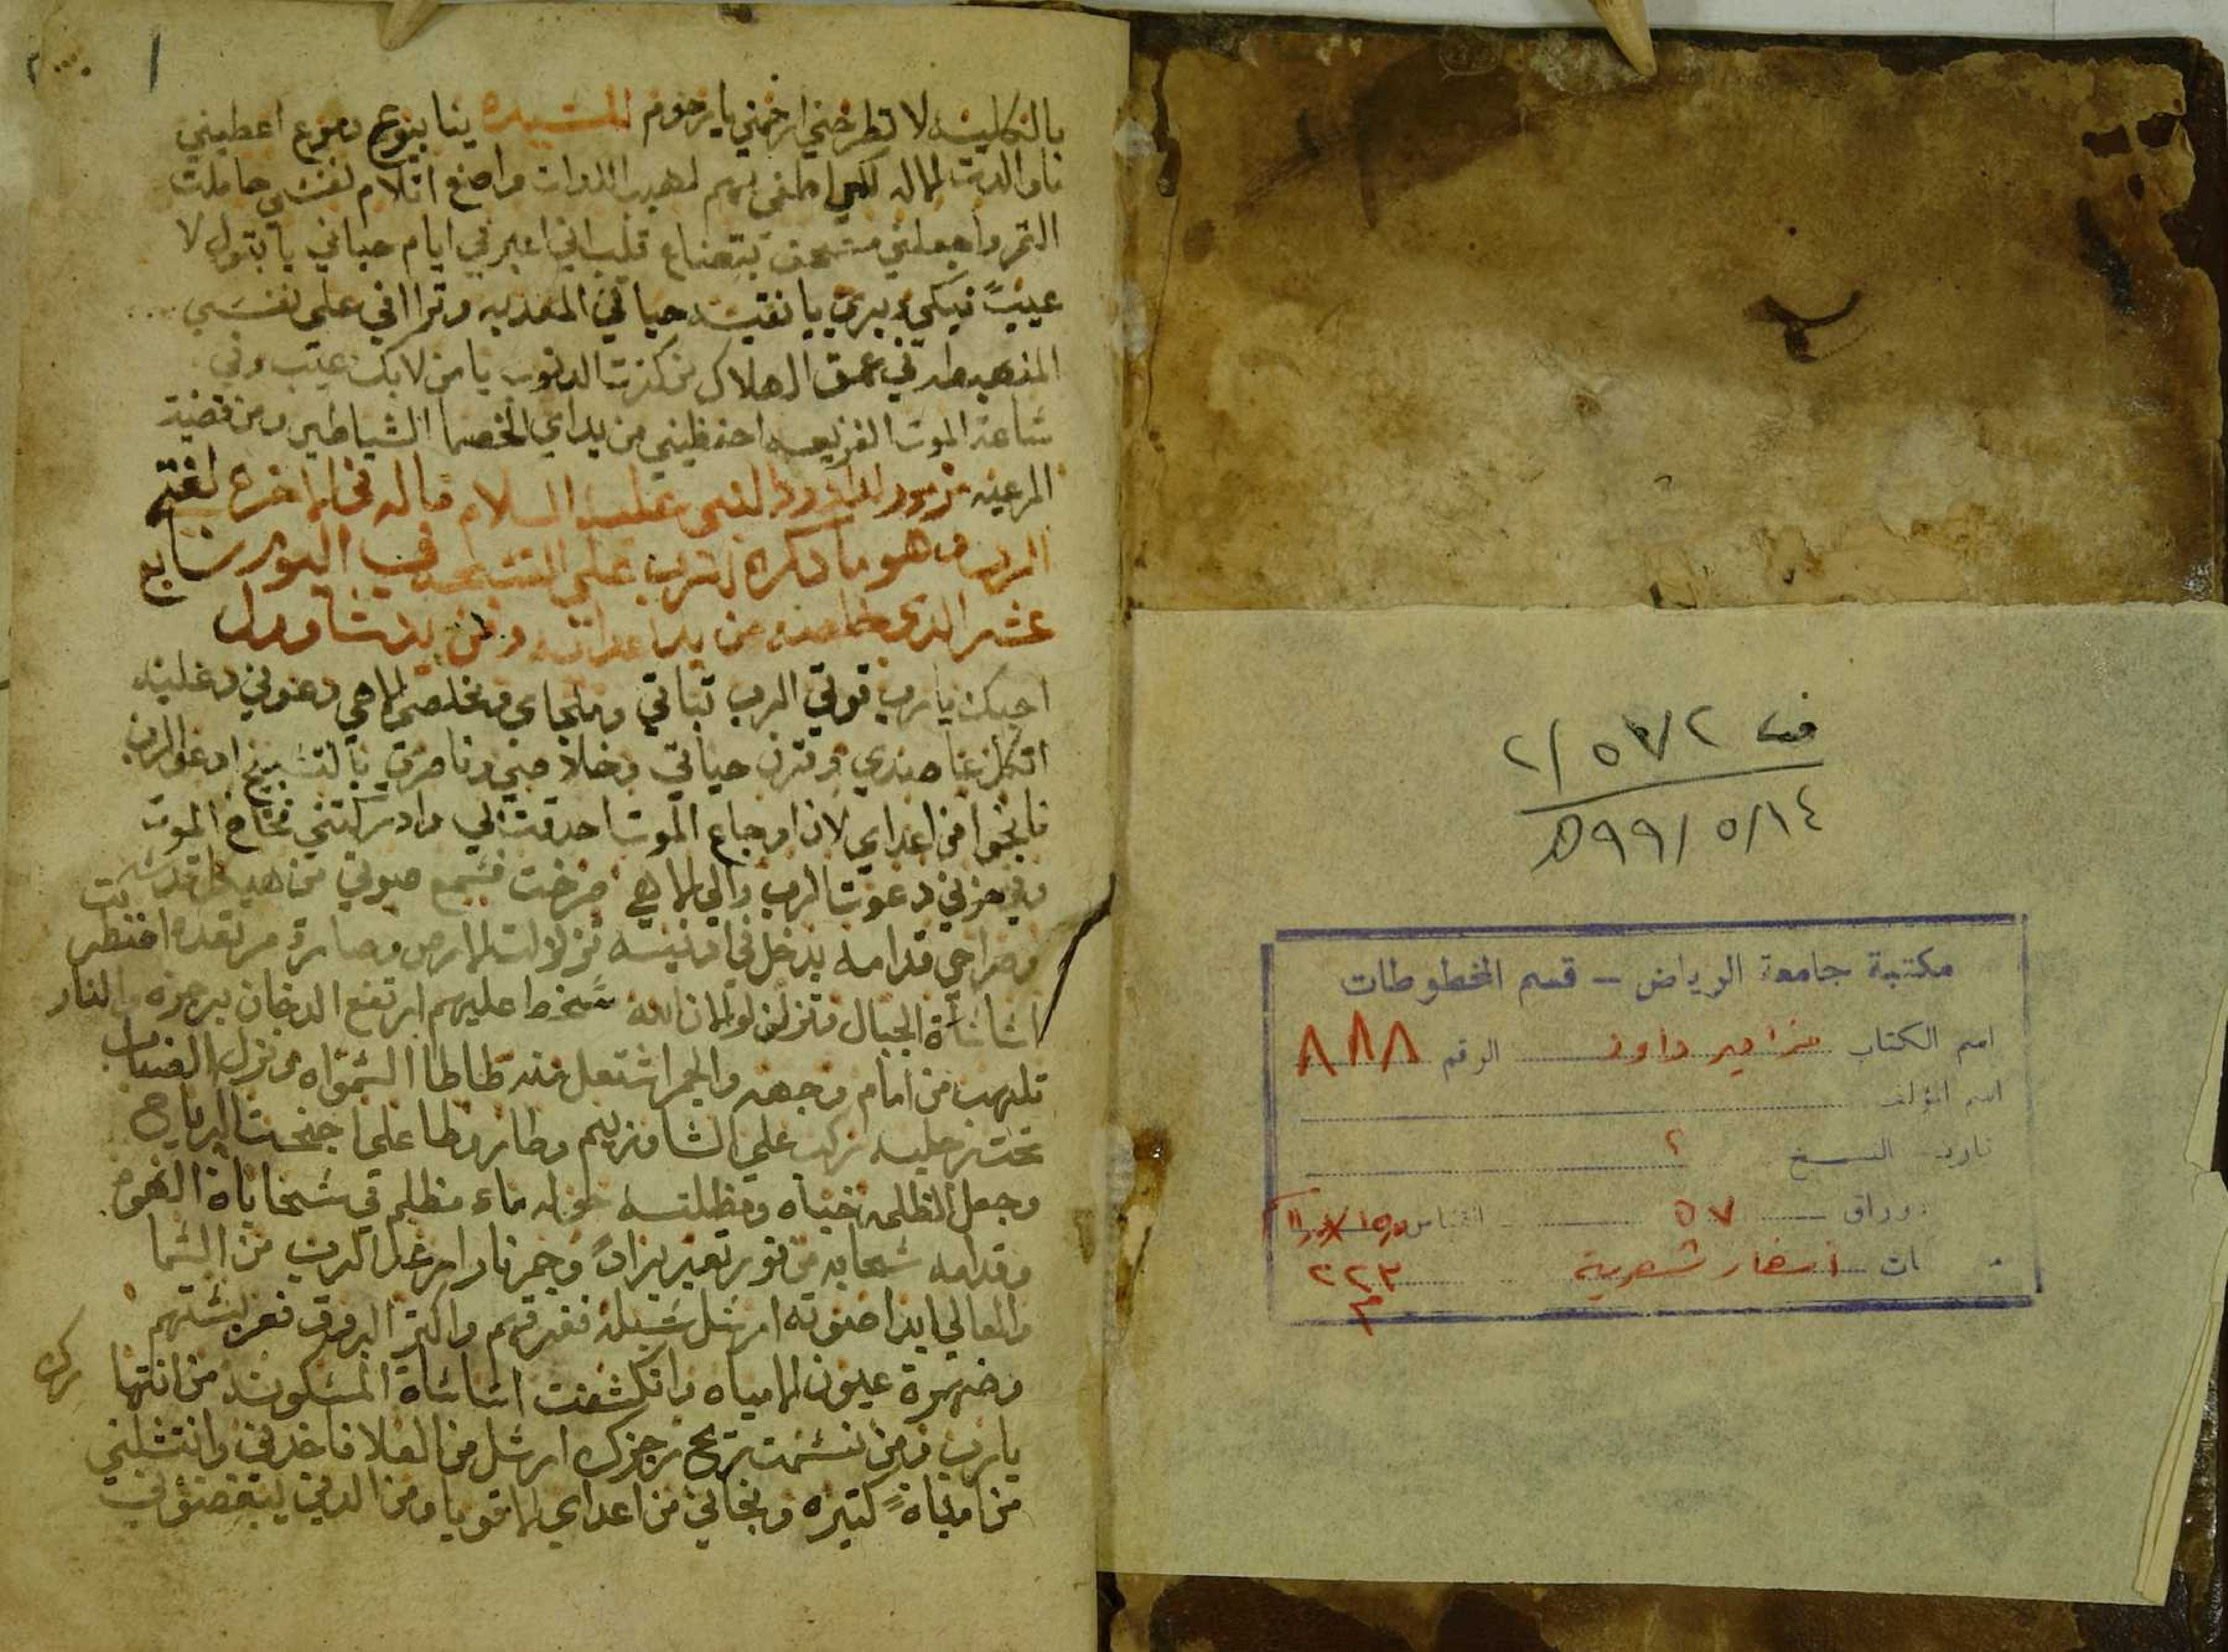 بالكليه لا تطرحني ارحمني يا رحوم للسيده ينابيع دموع اعطيني
الاله لكي اطفي بهم لهيب اللدات واصنع اتلام نفسي حاملت
التمر واجعلني مستحق بتضاع قلب اني اعبر في ايام حياتي يا بتول لا
عيبً فيكي دبري يا نقيه حياتي المعدبه وتراافي على نفسي
المنهبطه في عمق الهلاك من كترت الدنوب يا من لا بك عيب وفي
ساعة الموت الفزيعه احفظيني من يداي الخصما الشياطين ومن قضية
المرعبه مزمور لداوود النبي عليه السلام قاله في الاخره لفتى
الرب وهو ما دكره للرب على التسبحه في اليوم سابع
عشر الدي خلصه من يد اعدايه ومن يد شاوول
احبك يا رب قوتي الرب تباتي وملجاي ومخلصي الاهي دعوني وعليه
اتكل عاضدي وقرن حياتي وخلاصي وناصري بالتسبيح ادعو الرب
فانجوا من اعداي لان اوجاع الموت احدقت بي وادركتني فخاخ الموت
وفي حزني دعوت الرب والي الاهي صرخت فسمع صوتي من هيكل قدسه
وصراخي قدامه يدخل في ادنيه تزلزلت الارض وصارة مرتعده اضطر بت
اساساة الجبال وتزلزلو لان الله سخط عليهم ارتفع الدخان برجزه والنار
تلهب من امام وجهه والجمر اشتعل منه طاطا السمواه ونزل الضباب
تحت رجليه ركب على الشاروبيم وطار وطا على اجنحت الرياح
وجعل الظلمه خباه ومظلته حوله ماء مظلم في سحاباة الهوى
وقدامه سحابه من نور تعبر برادً وجمر نار ارعد الرب من السما
والعالي ابدا صوته ارسل سبله ففرقهم واكتر البروق فعربستهم
وضهرة عيون الامياه وانكشفت اساساة المسكونه من انتها رك
يا رب ومن نسمت ريح رجزك ارسل من العلا فاخدني وانتشلني
من امياهً كتيره ونجاني من اعداي الاقويا ومن الدين يبغضوني
ف ٢/٥٧٢
٩٩/٥/١٤ ه
مكتبة جامعة الرياض - قسم المخطوطات
اسم الكتاب مزامير داود الرقم ٨٨٨
اسم المؤلف
تاريخ النسخ ؟
اوراق ٥٧ القياس
ات اسفار شعرية ٢٢٣ م